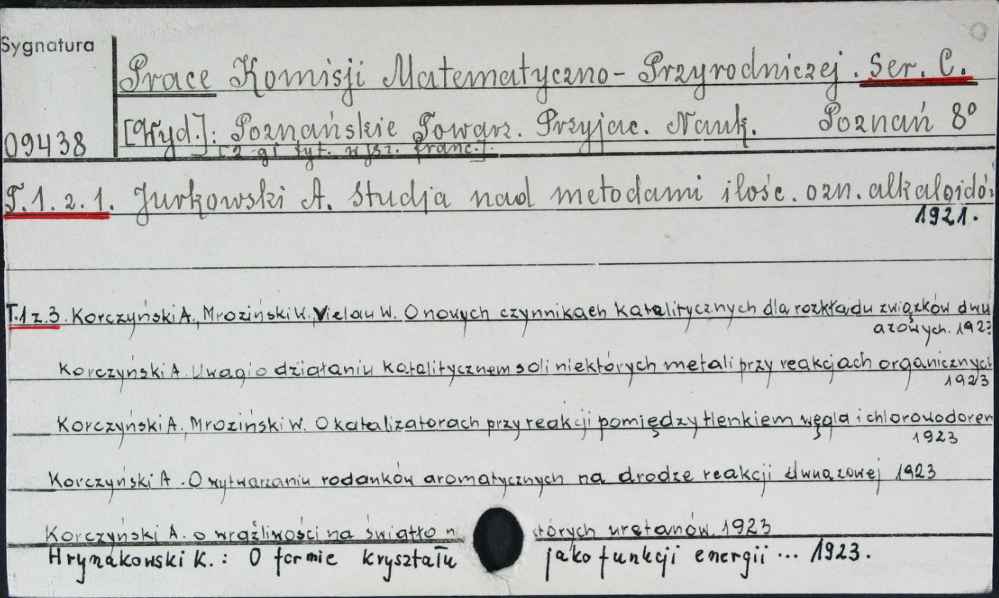 Sygnatura
Prace Komisji Matematyczno-Przyrodniczej. Ser. C.
09438
[Wyd.]: Poznańskie Towarz. Przyjac. Nauk. Poznań 8°
[2-gi tyt. w jęz. franc.].
T.1.z.1. Jurkowski A. Studja nad metodami ilośc. ozn. alkaloidó
1921.
T.1z.3. Korczyński A., Mroziński W., Vielau W. O nowych czynnikach katalitycznych dla rozkładu związków dwu
azowych. 1923
Korczyński A. Uwagi o działaniu katalitycznem soli niektórych metali przy reakcjach organicznych
1923
Korczyński A., Mroziński W. O katalizatorach przy reakcji pomiędzy tlenkiem węgla i chlorowodorem
1923
Korczyński A. O wytwarzaniu rodanków aromatycznych na drodze reakcji dwuazowej 1923
Korczyński A. o wrażliwości na światło n których uretanów. 1923
Hrynakowski K.: O formie kryształu jako funkcji energii... 1923.